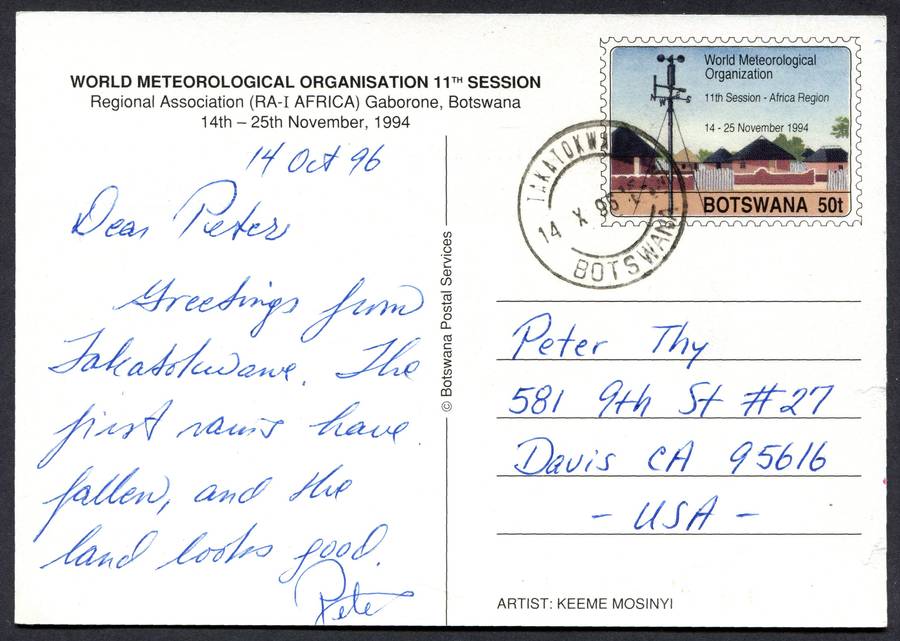 WORLD METEOROLOGICAL ORGANISATION 11TH SESSION
Regional Association (RA-I AFRICA) Gaborone, Botswana
14th – 25th November, 1994
14 Oct 96
Dear Peter
Greetings from
Takatokwane. The
first rains have
fallen, and the
land looks good.
Pete
© Botswana Postal Services
World Meteorological
Organization
11th Session - Africa Region
14 - 25 November 1994
BOTSWANA 50t
N W E S
14 X 96
BOTSWANA
Peter Thy
581 9th St #27
Davis CA 95616
- USA -
ARTIST: KEEME MOSINYI